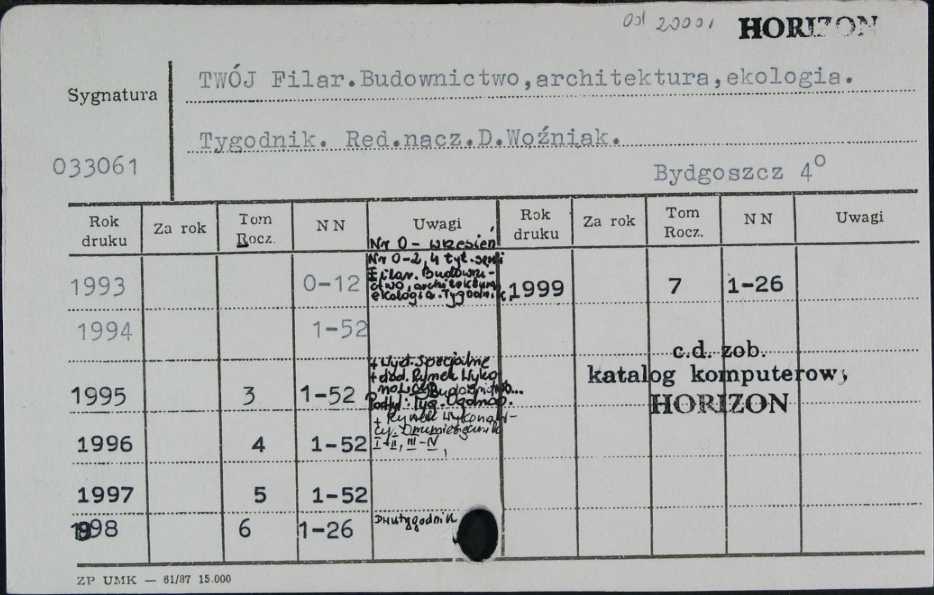 od 2000r
HORIZON
TWÓJ Filar.Budownictwo,architektura,ekologia.
Sygnatura
Tygodnik. Red.nacz.D.Woźniak.
033061
Bydgoszcz 4°
Rok druku Za rok Tom Rocz. N N Uwagi Rok druku Za rok Tom Rocz. N N Uwagi
Nr 0 - wrzesień
Nr 0-2, 4 tyt.
Filar. Budowni-
ctwo, architektura,
ekologia. Tygodnik.
1993 0-12 1999 7 1-26
1994 1-52
+ wyd. specjalne
+ dod. Rynek Wyko
nawców Budownictwo...
Podtyt: Tyg. Ogólnop.
1995 3 1-52
c.d. zob.
katalog komputerowy
HORIZON
+ Rynek Wykonaw-
cy. Dwumiesięcznik
I-II, III-IV,
1996 4 1-52
1997 5 1-52
1998 6 1-26 Dwutygodnik
ZP UMK — 61/87 15.000